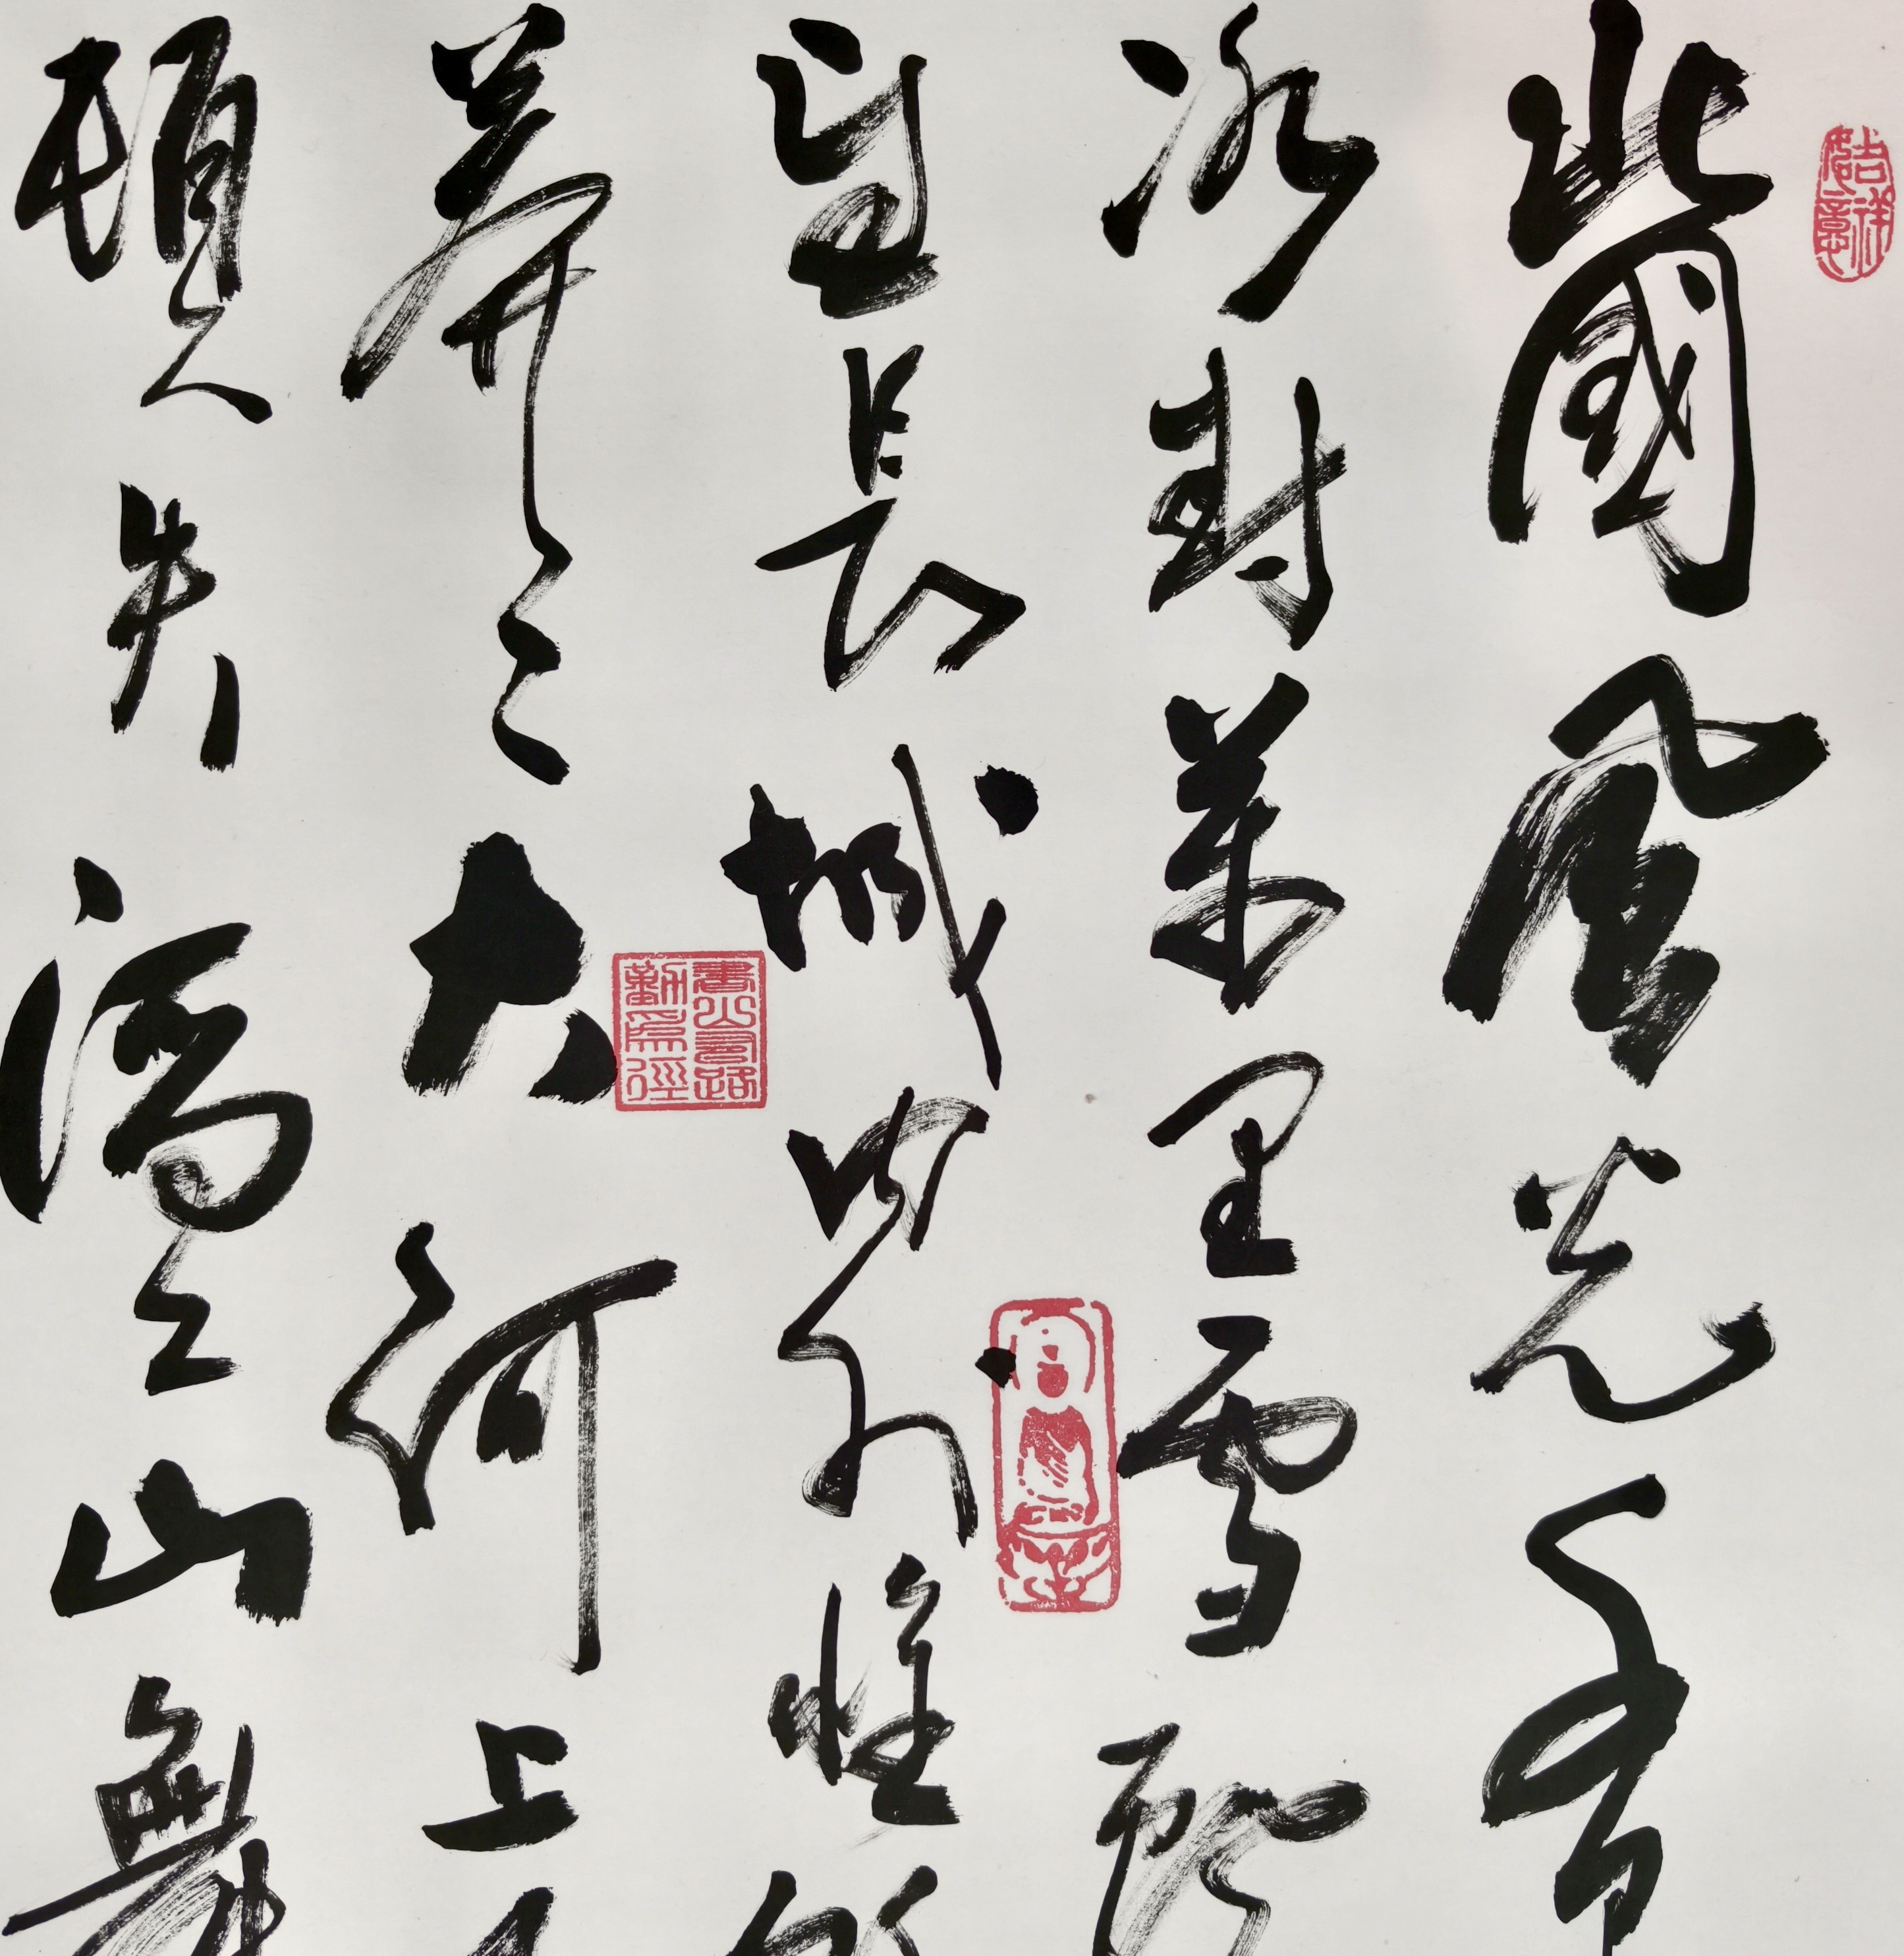 吉祥如意
北國風光千
冰封萬里雪飄
望長城內外惟
莽々大河上
頓失滔々山舞
書山有路勤為徑